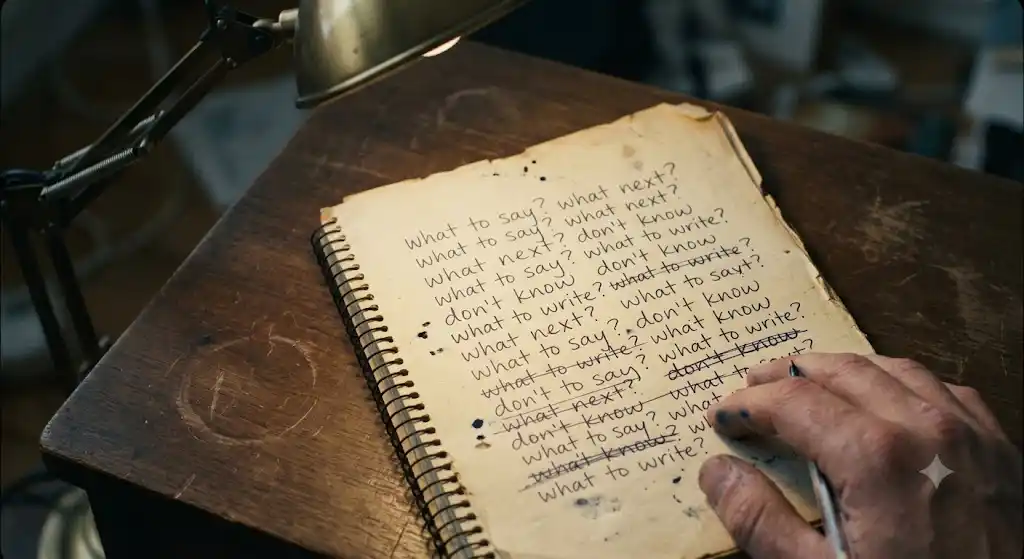 what to say? what next?
what to say? what next?
what next? don't know
what to say? what to write?
don't know don't know
what to write? what to write?
what next? what to sayt?
what to say? don't know
what to write? what know
don't to say? what to write?
what next? don't know
don't know what
what to say?
what know?
what to write?